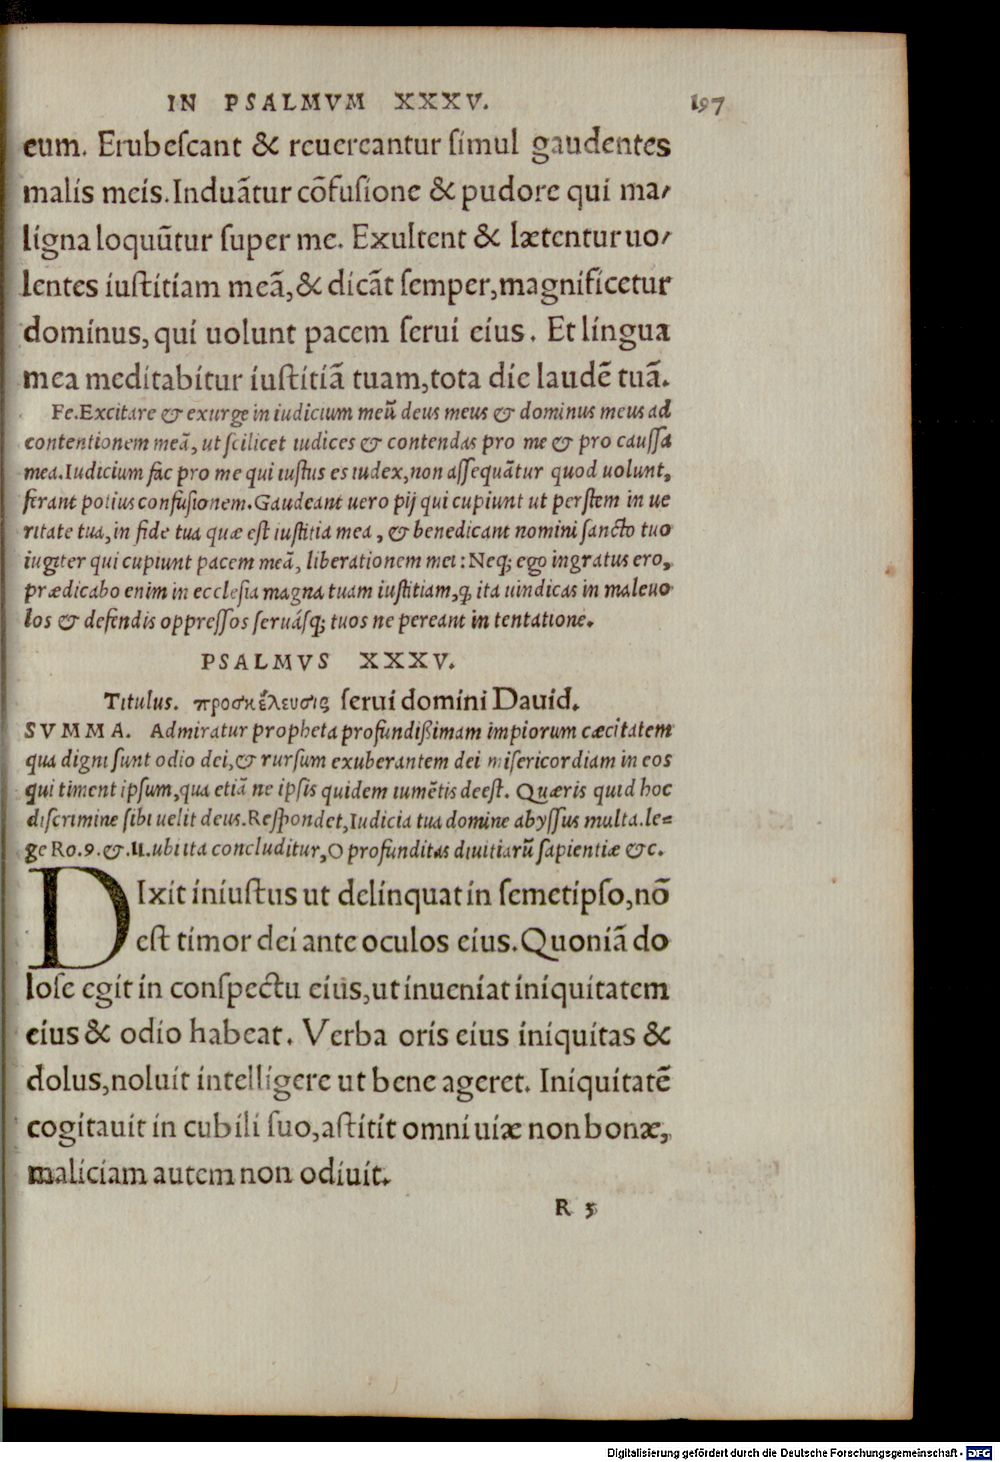 IN PSALMVM XXXV. 197
eum. Erubeſcant & reuereantur ſimul gaudentes
malis meis. Induãtur cõfuſione & pudore qui ma-
ligna loquũtur ſuper me. Exultent & lætentur uo-
lentes iuſtitiam meã, & dicãt ſemper, magnificetur
dominus, qui uolunt pacem ſerui eius. Et lingua
mea meditabitur iuſtitiã tuam, tota die laudẽ tuã.
Fe. Excitare & exurge in iudicium meũ deus meus & dominus meus ad
contentionem meã, ut ſcilicet iudices & contendas pro me & pro cauſſa
mea. Iudicium fac pro me qui iuſtus es iudex, non aſſequãtur quod uolunt,
ferant potius confuſionem. Gaudeant uero pij qui cupiunt ut perſtem in ue
ritate tua, in fide tua quæ eſt iuſtitia mea, & benedicant nomini ſancto tuo
iugiter qui cupiunt pacem meã, liberationem mei: Neq; ego ingratus ero,
prædicabo enim in eccleſia magna tuam iuſtitiam, q, ita uindicas in maleuo
los & defendis oppreſſos ſeruáſq; tuos ne pereant in tentatione.
PSALMVS XXXV.
Titulus. προσκέλευσις ſerui domini Dauid.
SVMMA. Admiratur propheta profundißimam impiorum cæcitatem
qua digni ſunt odio dei, & rurſum exuberantem dei miſericordiam in eos
qui timent ipſum, qua etiã ne ipſis quidem iumẽtis deeſt. Quæris quid hoc
diſcrimine ſibi uelit deus. Reſpondet, Iudicia tua domine abyſſus multa. le=
ge Ro. 9. &. 11. ubi ita concluditur, O profunditas diuitiarũ ſapientiæ &c.
DIxit iniuſtus ut delinquat in ſemetipſo, nõ
eſt timor dei ante oculos eius. Quoniã do
loſe egit in conſpectu eius, ut inueniat iniquitatem
eius & odio habeat. Verba oris eius iniquitas &
dolus, noluit intelligere ut bene ageret. Iniquitatẽ
cogitauit in cubili ſuo, aſtitit omni uiæ non bonæ,
maliciam autem non odiuit.
R 5
Digitalisierung gefördert durch die Deutsche Forschungsgemeinschaft - DFG